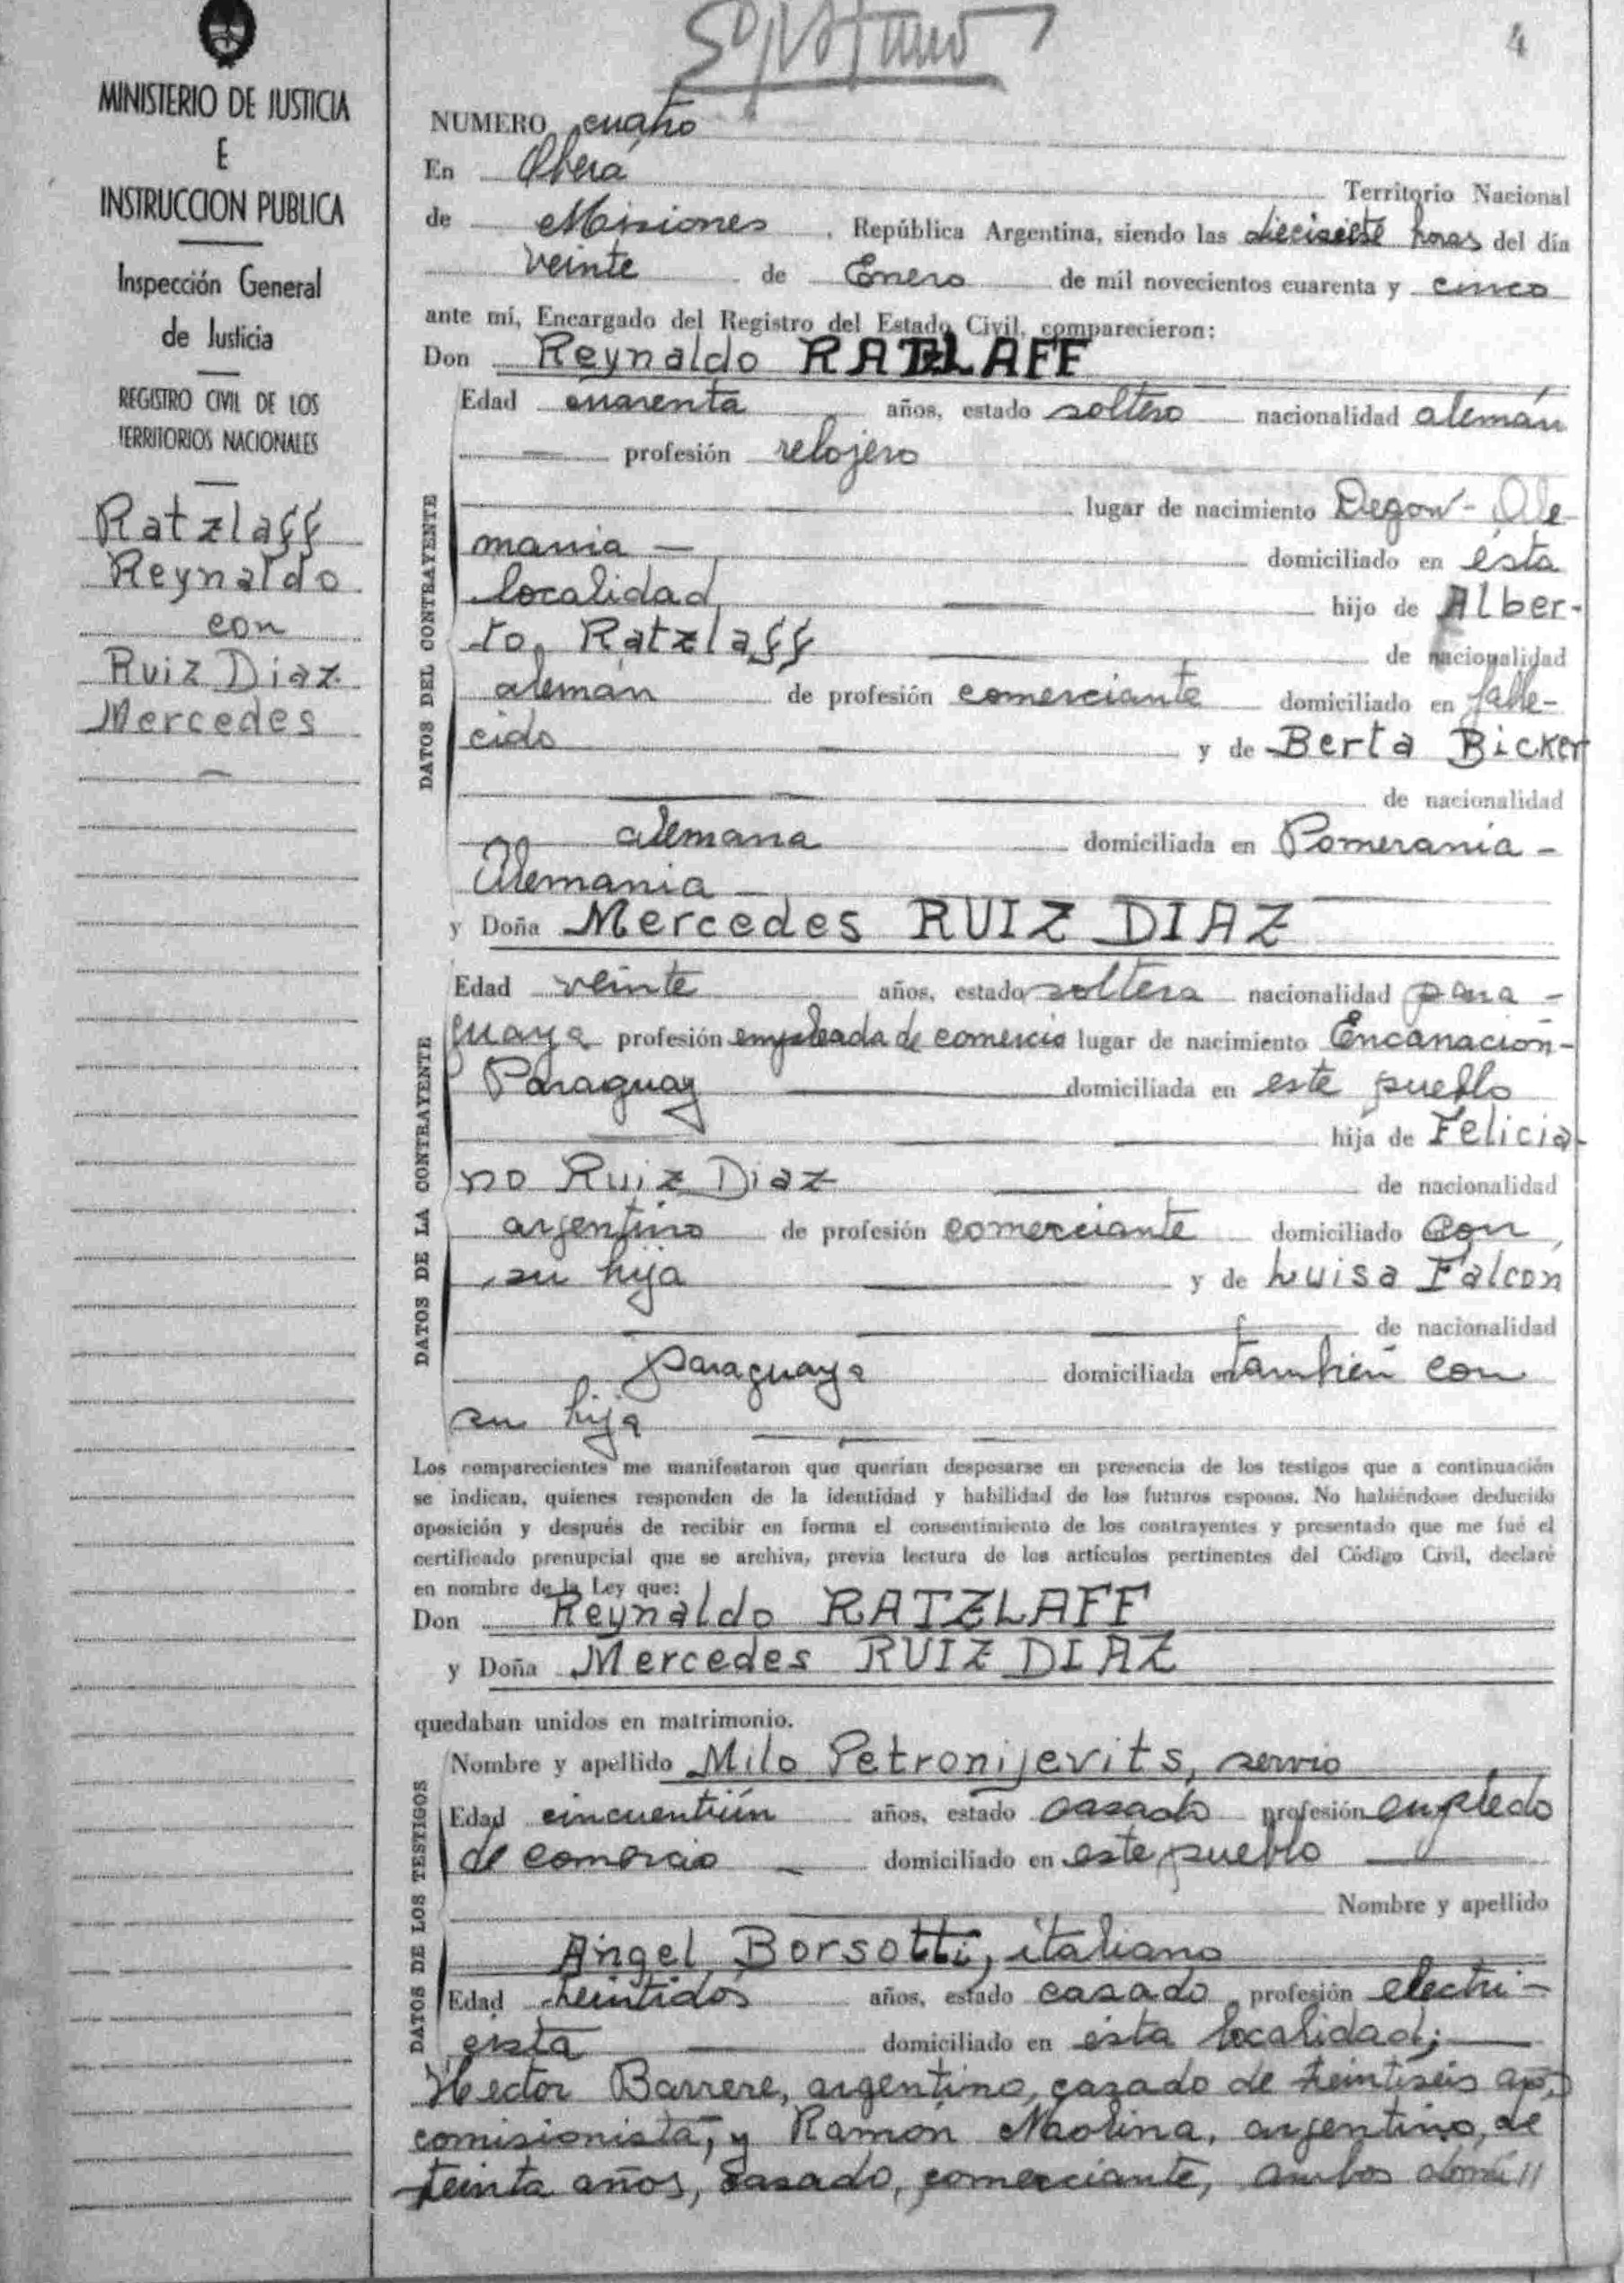 4
MINISTERIO DE JUSTICIA
E
INSTRUCCION PUBLICA
Inspección General
de Justicia
REGISTRO CIVIL DE LOS
TERRITORIOS NACIONALES
Ratzlaff
Reynaldo
con
Ruiz Diaz
Mercedes
NUMERO cuatro
En Oberá Territorio Nacional
de Misiones, República Argentina, siendo las diecisiete horas del día
veinte de Enero de mil novecientos cuarenta y cinco
ante mí, Encargado del Registro del Estado Civil, comparecieron:
Don Reynaldo RATZLAFF
DATOS DEL CONTRAYENTE
Edad cuarenta años, estado soltero nacionalidad alemán
profesión relojero
lugar de nacimiento Degow - Ale-
mania — domiciliado en ésta
localidad hijo de Alber-
to Ratzlaff de nacionalidad
alemán de profesión comerciante domiciliado en falle-
cido y de Berta Bicker
de nacionalidad
alemana domiciliada en Pomerania -
Alemania —
y Doña Mercedes RUIZ DIAZ
DATOS DE LA CONTRAYENTE
Edad veinte años, estado soltera nacionalidad para -
guaya profesión empleada de comercio lugar de nacimiento Encanación -
Paraguay domiciliada en este pueblo
hija de Felicia-
no Ruiz Diaz de nacionalidad
argentino de profesión comerciante domiciliado con
su hija y de Luisa Falcon
de nacionalidad
paraguaya domiciliada en también con
su hija
Los comparecientes me manifestaron que querían desposarse en presencia de los testigos que a continuación
se indican, quienes responden de la identidad y habilidad de los futuros esposos. No habiéndose deducido
oposición y después de recibir en forma el consentimiento de los contrayentes y presentado que me fué el
certificado prenupcial que se archiva, previa lectura de los artículos pertinentes del Código Civil, declaré
en nombre de la Ley que:
Don Reynaldo RATZLAFF
y Doña Mercedes RUIZ DIAZ
quedaban unidos en matrimonio.
DATOS DE LOS TESTIGOS
Nombre y apellido Milo Petronijevits, servio
Edad cincuentiún años, estado casado profesión empledo
de comercio — domiciliado en este pueblo
Nombre y apellido
Angel Borsotti, italiano
Edad treintidós años, estado casado profesión electri -
cista domiciliado en ésta localidad;
Hector Barrere, argentino, casado de treintiséis años,
comisionista, y Ramón Maolina, argentino, de
treinta años, casado, comerciante, ambos domi//